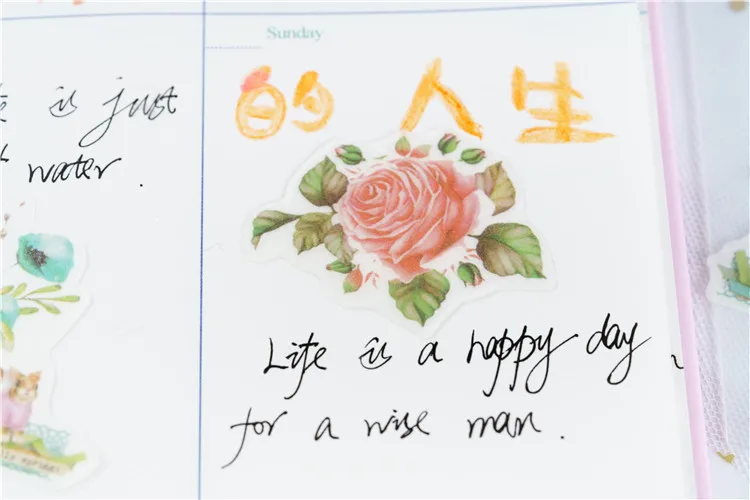 Sunday
的人生
is just
water.
Life is a happy day
for a wise man.